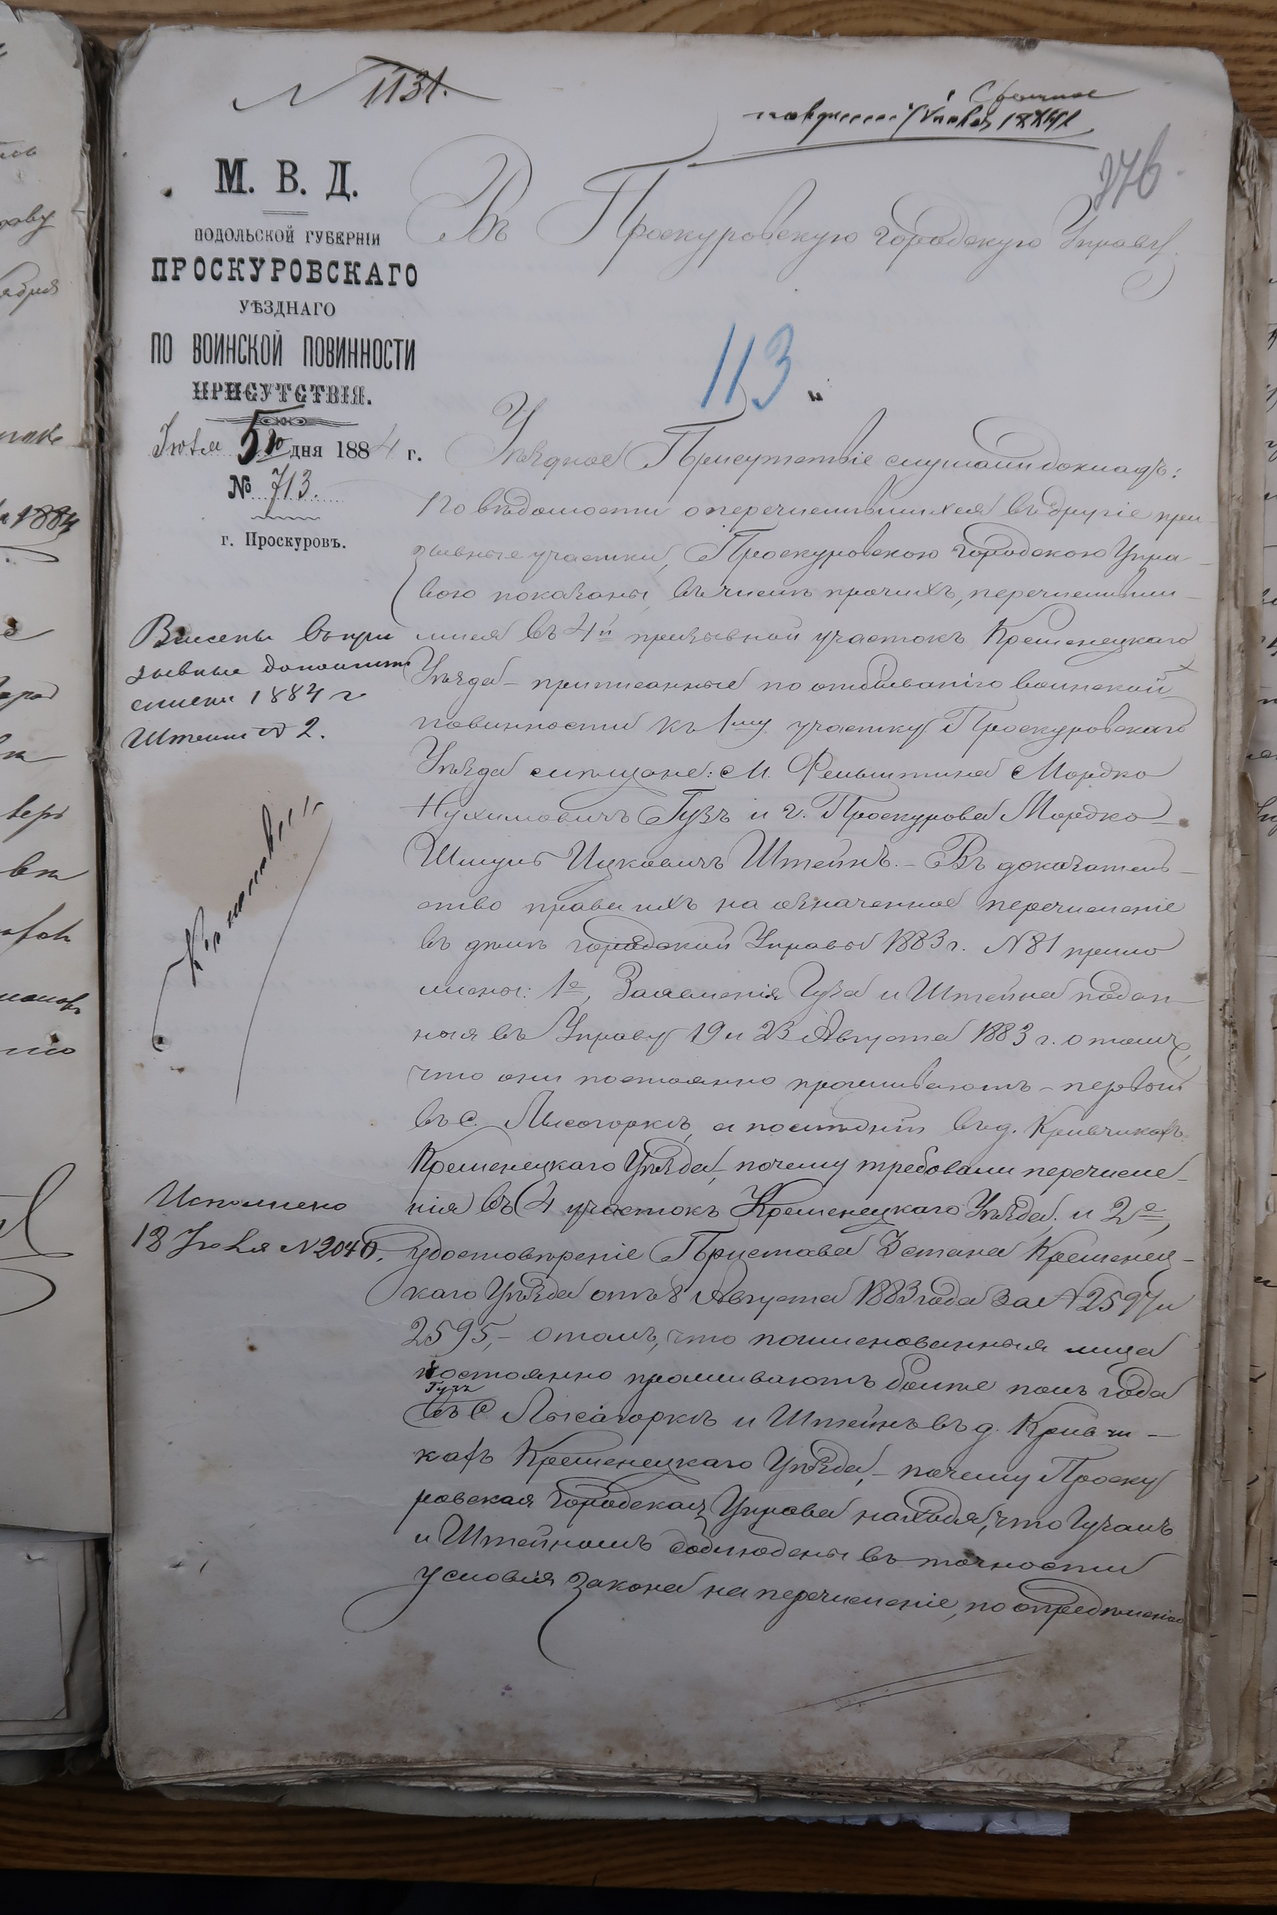 N 1131.
Срочное
получено 7 Июля 1884 г.
276
М. В. Д.
ПОДОЛЬСКОЙ ГУБЕРНІИ
ПРОСКУРОВСКАГО
УѢЗДНАГО
ПО ВОИНСКОЙ ПОВИННОСТИ
ПРИСУТСТВІЯ.
Іюля 5го дня 1884 г.
№ 713.
г. Проскуровъ.
Въ Проскуровскую Городскую Управу.
113.
Уѣздное Присутствіе слушали докладъ:
по вѣдомости о перечислившихся въ другіе при-
зывные участки, Проскуровскою Городскою Упра-
вою показаны, въ числѣ прочихъ, перечисливши-
мися въ 4й призывной участокъ Кременецкаго
Уѣзда – приписанные по отбыванію воинской
повинности къ 1му участку Проскуровскаго
Уѣзда мѣщане: м. Фельштина Мордко
Нухимовичъ Гузъ и г. Проскурова Мордко-
Шмуль Ицковичъ Штейнъ. – Въ доказатель-
ство права ихъ на означенное перечисленіе
въ дѣлѣ Городской Управы 1883 г. N 81 прило
жены: 1е, Заявленія Гуза и Штейна подан-
ныя въ Управу 19 и 23 Августа 1883 г. о томъ,
что они постоянно проживаютъ – первый
въ с. Лысогоркѣ, а послѣдній въ д. Кривчикахъ
Кременецкаго Уѣзда, почему требовали перечисле-
нія въ 4 участокъ Кременецкаго Уѣзда. и 2е,
удостовѣреніе Пристава 3 стана Кременец-
каго Уѣзда отъ 8 Августа 1883 года за N 2594 и
2595, – о томъ, что поименованныя лица
постоянно проживаютъ болѣе полъ года
Гузъ
въ с. Лысогоркѣ и Штейнъ въ д. Кривчи-
кахъ Кременецкаго Уѣзда, – почему Проску
ровская Городская Управа находя, что Гузомъ
и Штейномъ соблюдены въ точности
условія закона на перечисленіе, по опредѣленію
Внесены въ при
зывные дополнит.
списки 1884 г.
Штейн N 2.
Исполнено
18 Іюля N 2040.